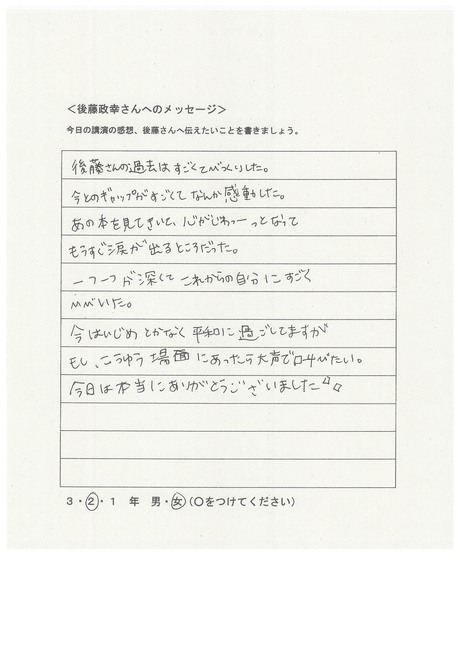 ＜後藤政幸さんへのメッセージ＞
今日の講演の感想、後藤さんへ伝えたいことを書きましょう。
後藤さんの過去はすごくてびっくりした。
今とのギャップがすごくてなんか感動した。
あの本を見てきいて、心がじわーっとなって
もうすぐ涙が出るところだった。
一つ一つが深くてこれからの自分にすごく
いた。
今はいじめとかなく平和に過ごしてますが
もし、こうゆう場面にあったら大声で叫びたい。
今日は本当にありがとうございました
3・2・1 年 男・女（○をつけてください）